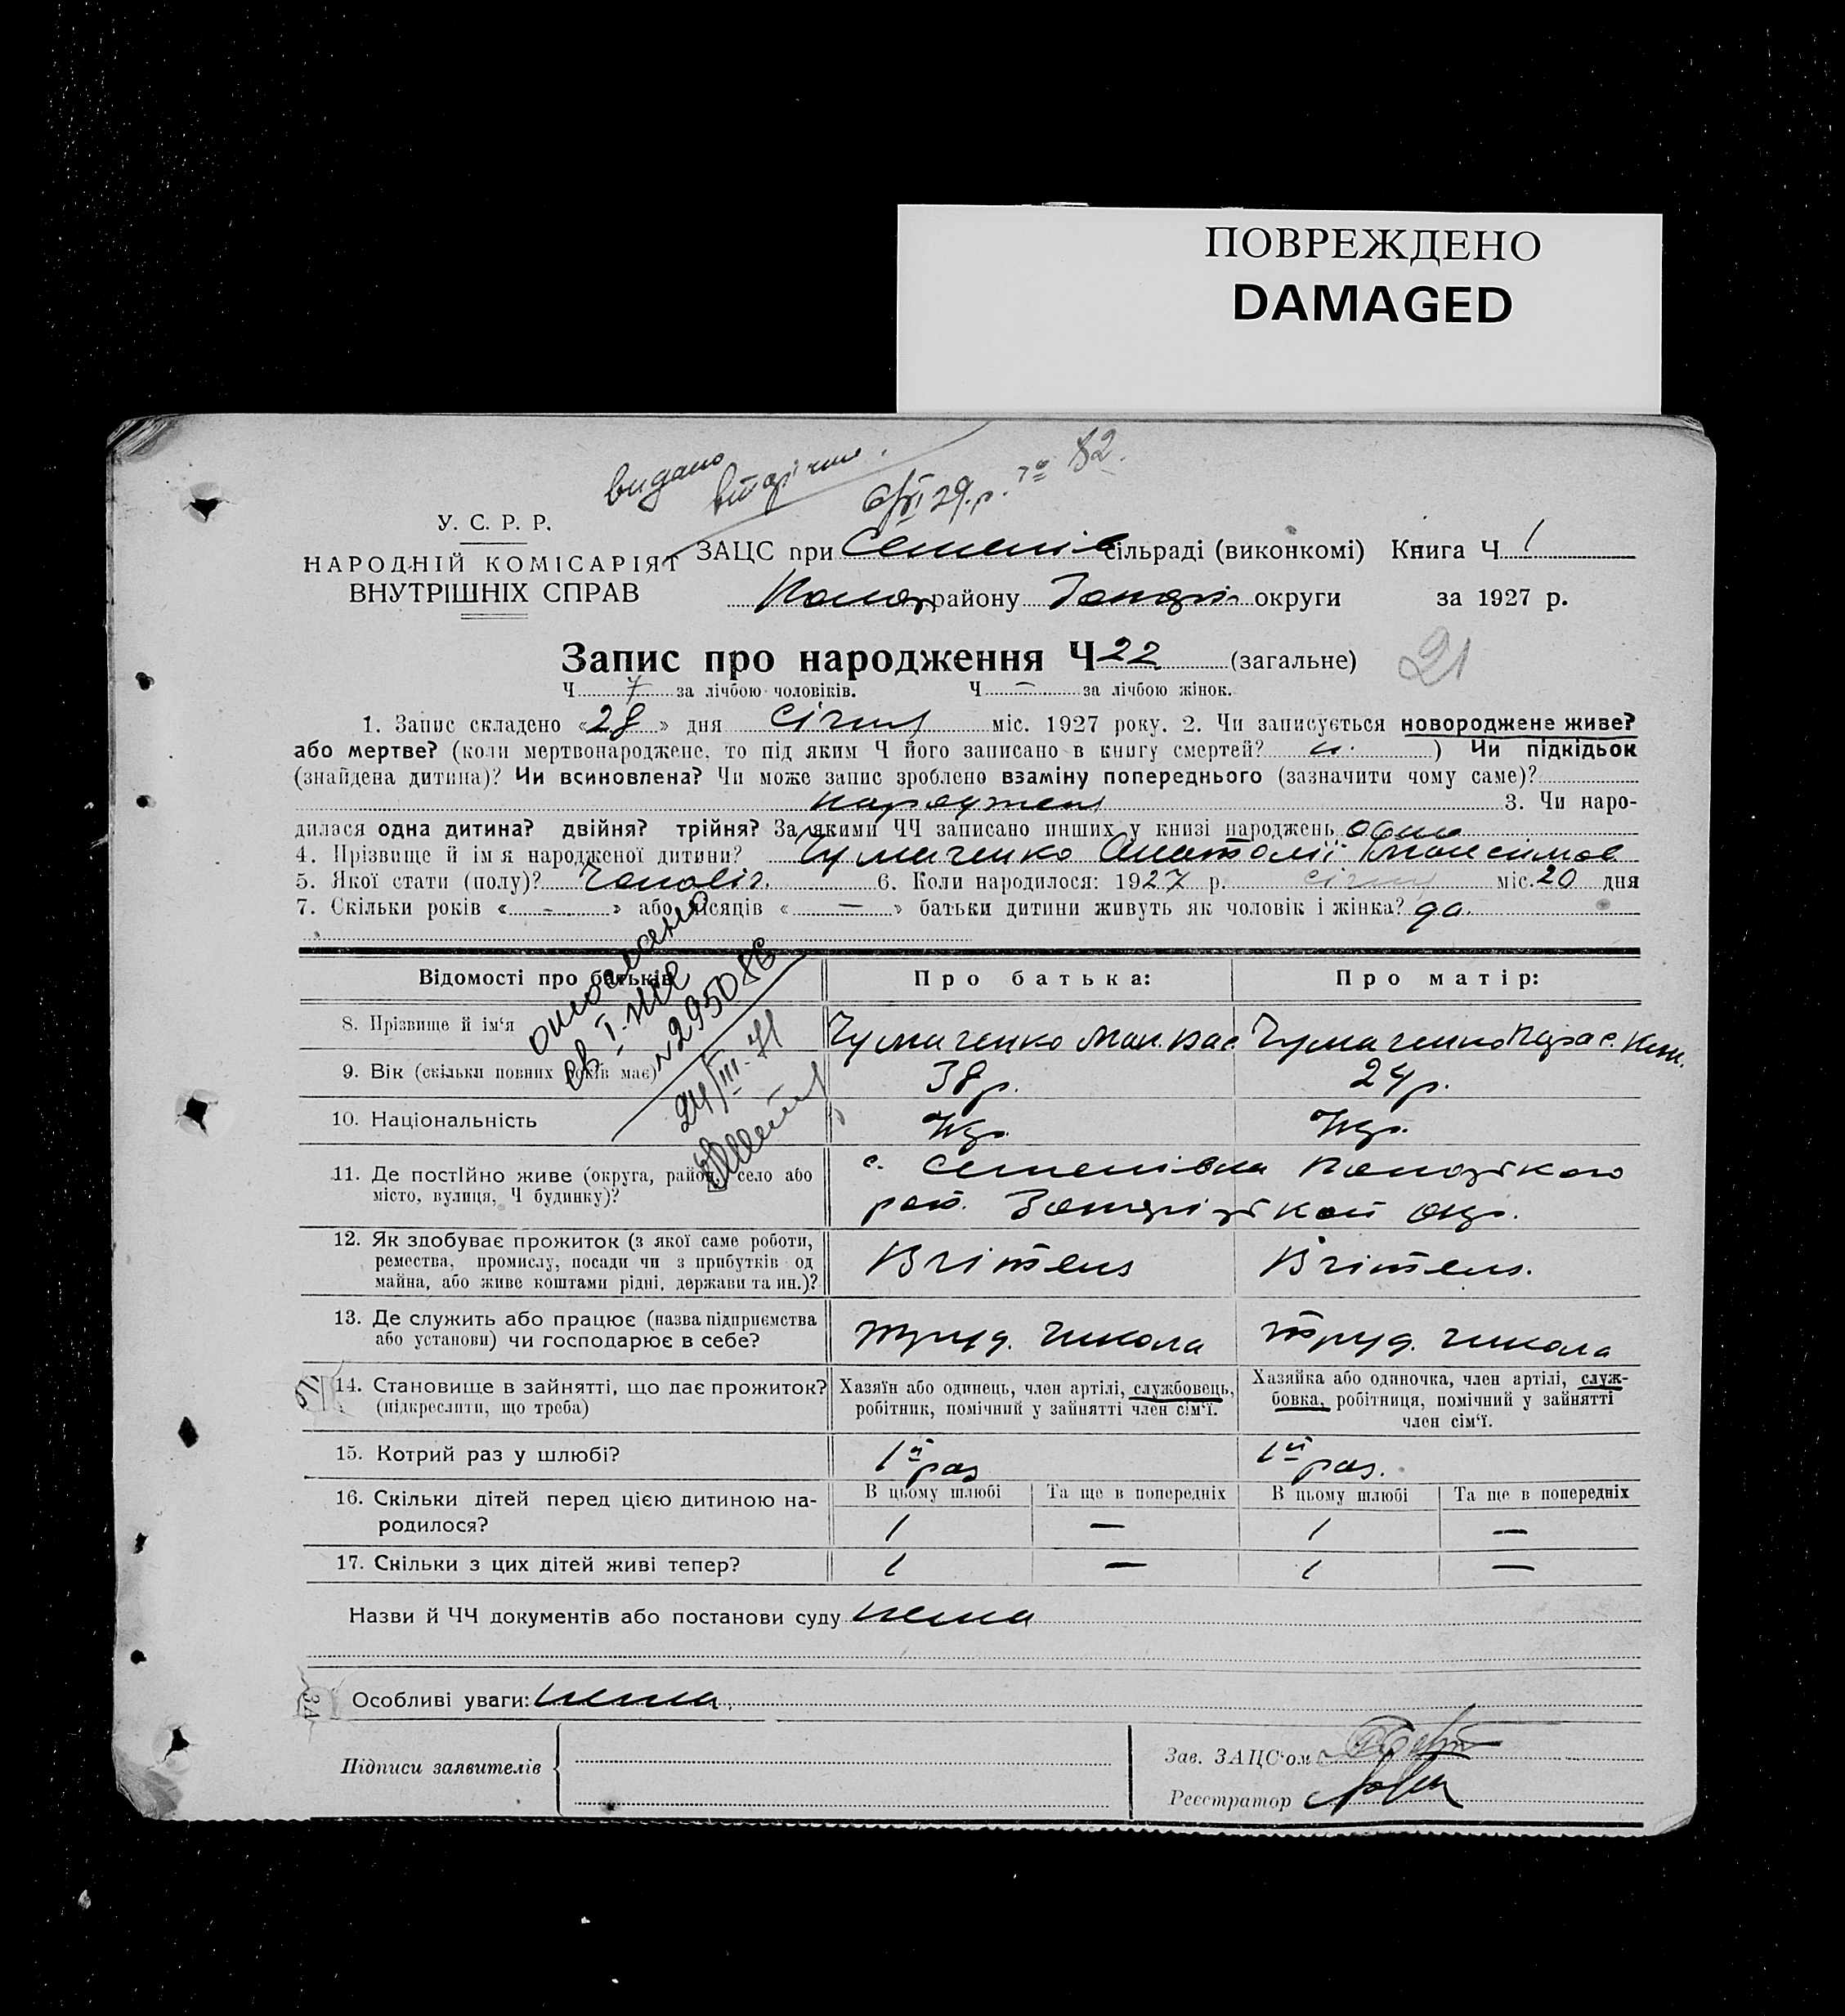 ПОВРЕЖДЕНО
DAMAGED
видано вторічно.
29.р. 82.
У. С. Р. Р.
НАРОДНІЙ КОМІСАРІЯТ
ВНУТРІШНІХ СПРАВ
ЗАЦС при Семенів сільраді (виконкомі) Книга Ч 1
району округи за 1927 р.
Запис про народження Ч 22 (загальне)
21
Ч 7 за лічбою чоловіків. Ч — за лічбою жінок.
1. Запис складено «28» дня січня міс. 1927 року. 2. Чи записується новороджене живе?
або мертве? (коли мертвонароджене, то під яким Ч його записано в книгу смертей? ) Чи підкідьок
(знайдена дитина)? Чи всиновлена? Чи може запис зроблено взаміну попереднього (зазначити чому саме)?
3. Чи наро-
дилася одна дитина? двійня? трійня? За якими ЧЧ записано инших у книзі народжень
4. Прізвище й імя народженої дитини? Чумаченко Анатолії Максимов
5. Якої стати (полу)? Чоловіч. 6. Коли народилося: 1927 р. січня міс. 20 дня
7. Скільки років «—» або місяців «—» батьки дитини живуть як чоловік і жінка? да.
Відомості про батьків Про батька: Про матір:
8. Прізвище й ім‘я Чумаченко Мак. Вас. Чумаченко Парас.
9. Вік (скільки повних років має) 38 р. 24 р.
10. Національність Укр. Укр.
11. Де постійно живе (округа, район, село або
місто, вулиця, Ч будинку)?
с. Семенівка
12. Як здобуває прожиток (з якої саме роботи,
ремества, промислу, посади чи з прибутків од
майна, або живе коштами рідні, держави та ин.)?
Вчітель Вчітель.
13. Де служить або працює (назва підприємства
або установи) чи господарює в себе?
труд. школа труд. школа
14. Становище в зайнятті, що дає прожиток?
(підкреслити, що треба)
Хазяїн або одинець, член артілі, службовець,
робітник, помічний у зайнятті член сім‘ї.
Хазяйка або одиночка, член артілі, служ-
бовка, робітниця, помічний у зайнятті
член сім‘ї.
15. Котрий раз у шлюбі? 1й раз 1й раз.
16. Скільки дітей перед цією дитиною на-
родилося?
В цьому шлюбі Та ще в попередніх В цьому шлюбі Та ще в попередніх
1 — 1 —
17. Скільки з цих дітей живі тепер? 1 — 1 —
№ 295086
24/III-71
Назви й ЧЧ документів або постанови суду нема
Особливі уваги: нема.
Підписи заявителів
Зав. ЗАЦС‘ом
Реєстратор